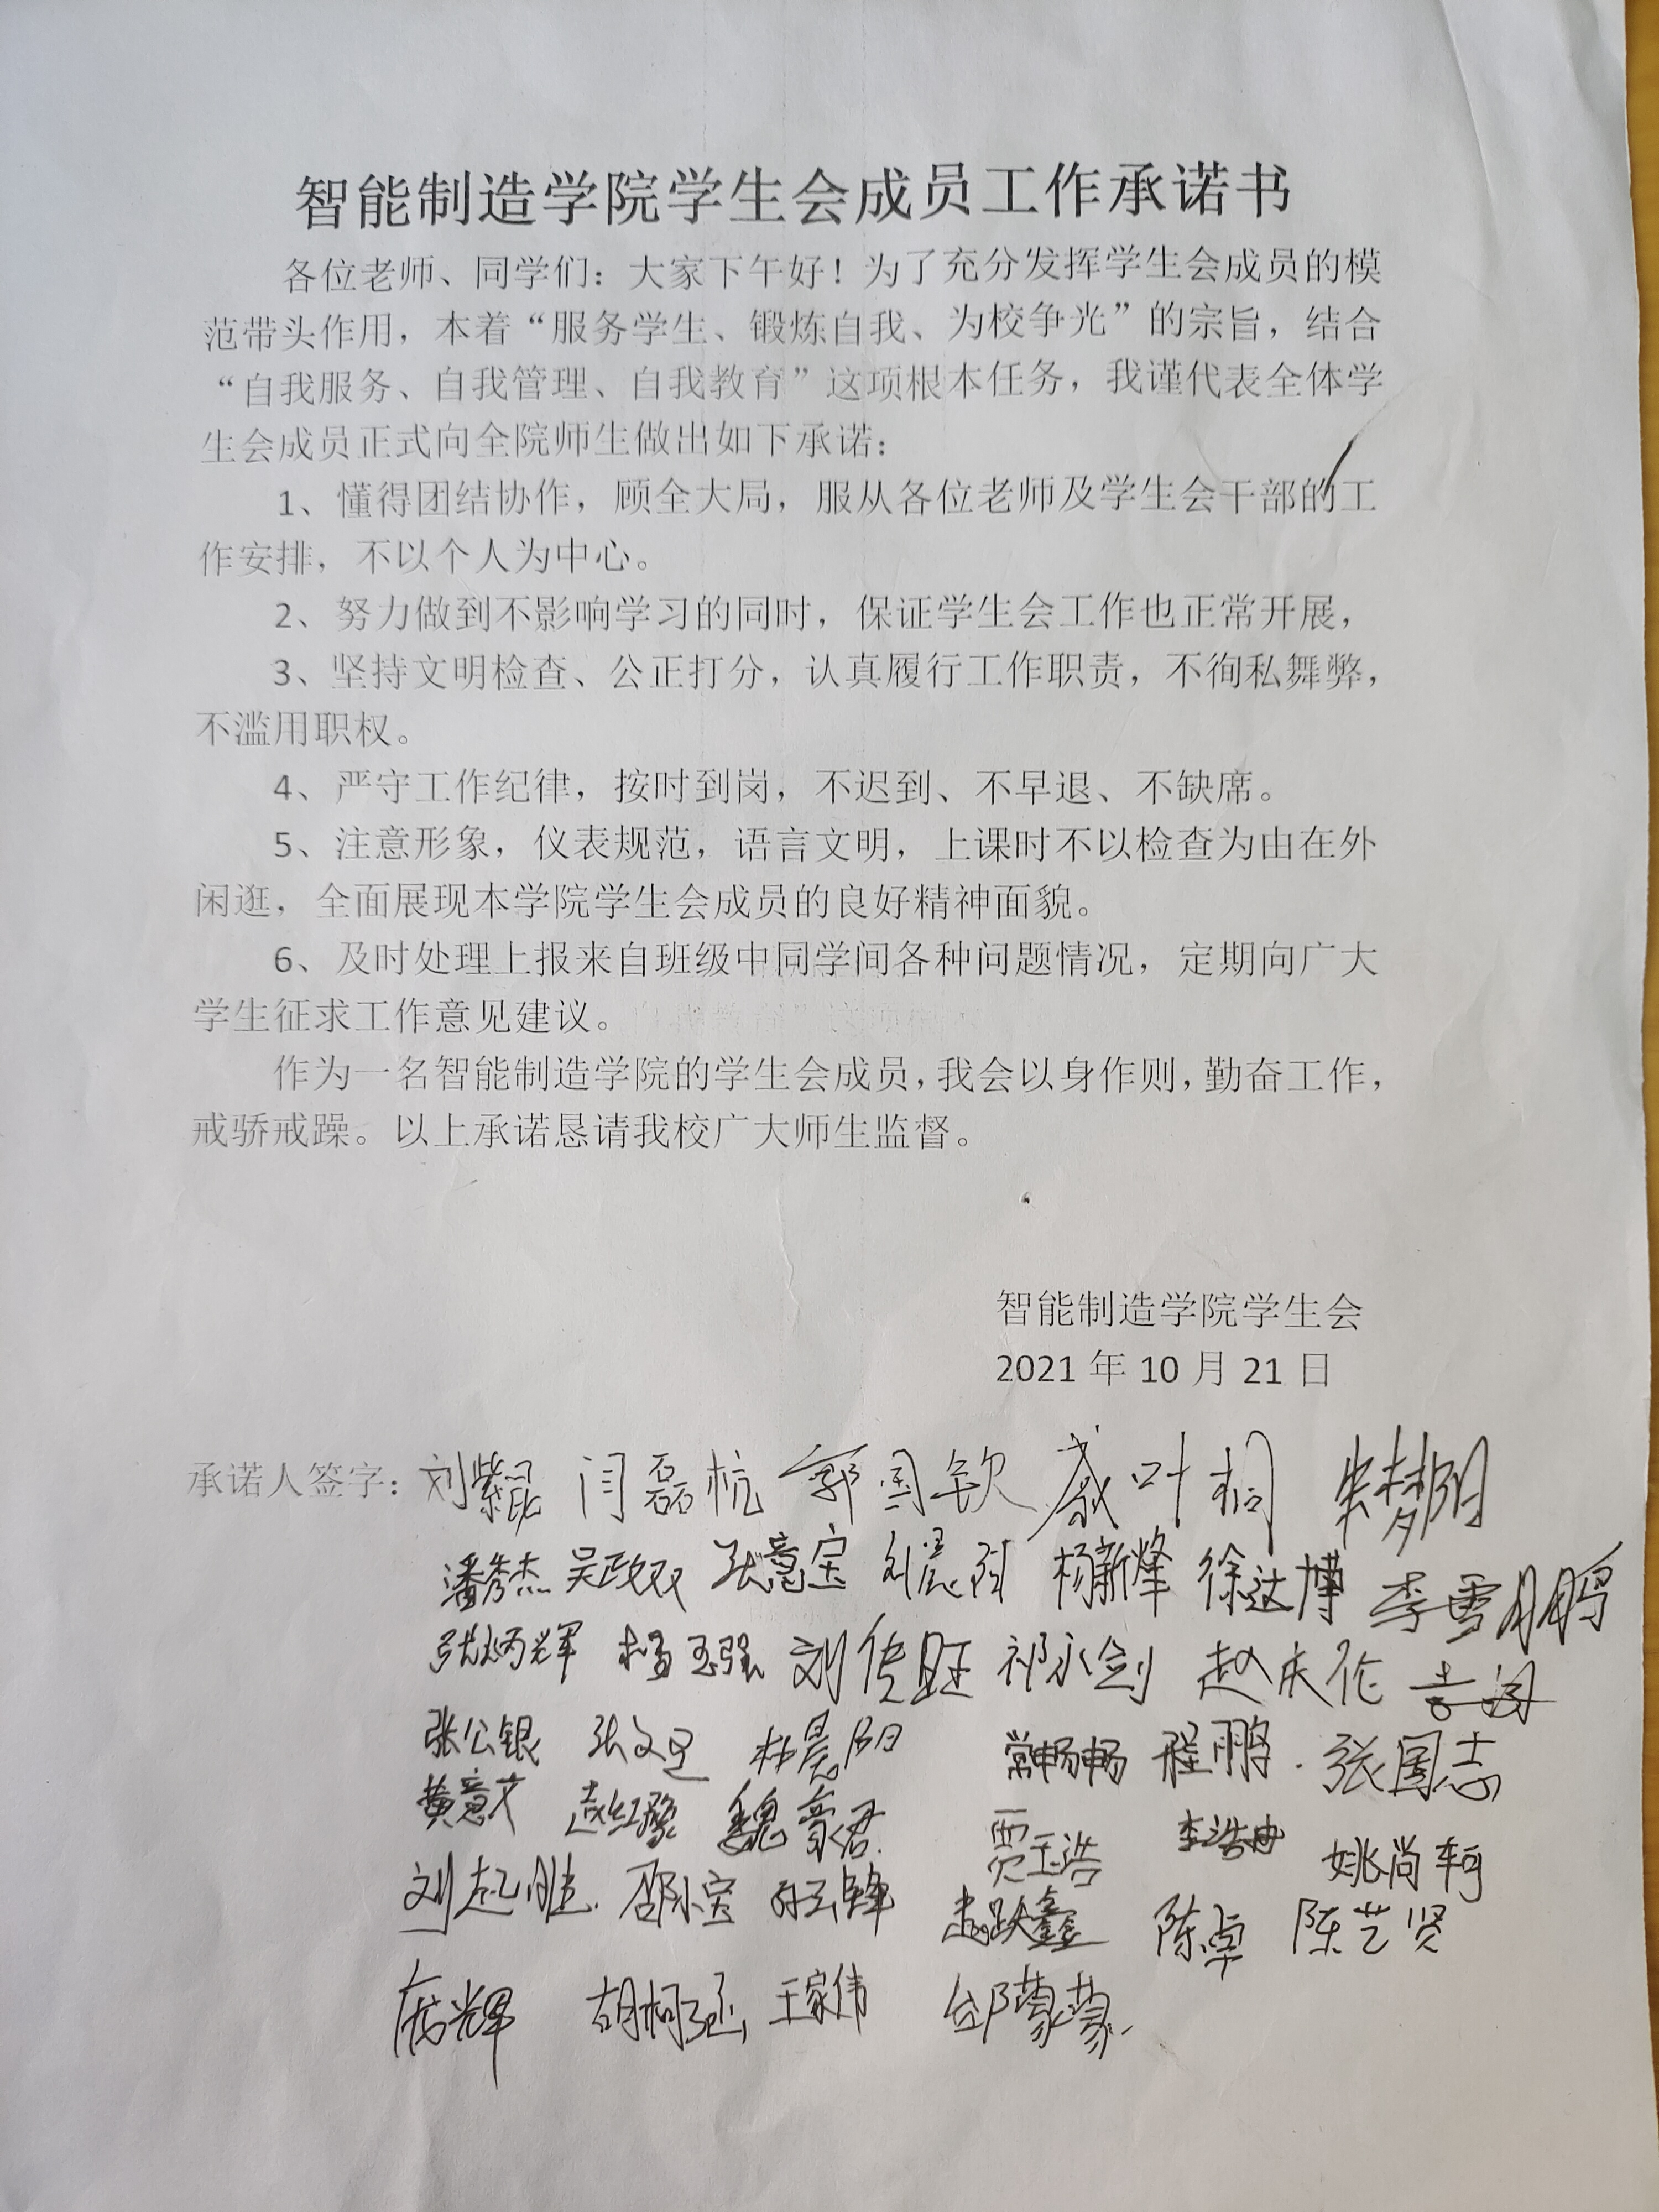 智能制造学院学生会成员工作承诺书
各位老师、同学们：大家下午好！为了充分发挥学生会成员的模
范带头作用，本着“服务学生、锻炼自我、为校争光”的宗旨，结合
“自我服务、自我管理、自我教育”这项根本任务，我谨代表全体学
生会成员正式向全院师生做出如下承诺：
1、懂得团结协作，顾全大局，服从各位老师及学生会干部的工
作安排，不以个人为中心。
2、努力做到不影响学习的同时，保证学生会工作也正常开展，
3、坚持文明检查、公正打分，认真履行工作职责，不徇私舞弊，
不滥用职权。
4、严守工作纪律，按时到岗，不迟到、不早退、不缺席。
5、注意形象，仪表规范，语言文明，上课时不以检查为由在外
闲逛，全面展现本学院学生会成员的良好精神面貌。
6、及时处理上报来自班级中同学间各种问题情况，定期向广大
学生征求工作意见建议。
作为一名智能制造学院的学生会成员，我会以身作则，勤奋工作，
戒骄戒躁。以上承诺恳请我校广大师生监督。
智能制造学院学生会
2021 年 10 月 21 日
承诺人签字：刘紫昆 闫磊杭 郭国钦 戚叶桐 朱梦阳
潘秀杰 吴政双 张意宝 杨新烽 徐达博 李雪鹏
张炳辉 杨玉强 刘传旺 祁永剑 赵庆伦
张公银 杜晨阳 常畅畅 程鹏 张国志
黄意艾 赵红豫 魏豪君 贾玉浩 李浩冉 姚尚轲
刘起胜 邵小宝 赵跃鑫 陈卓 陈艺贤
王家伟 邰蒙蒙